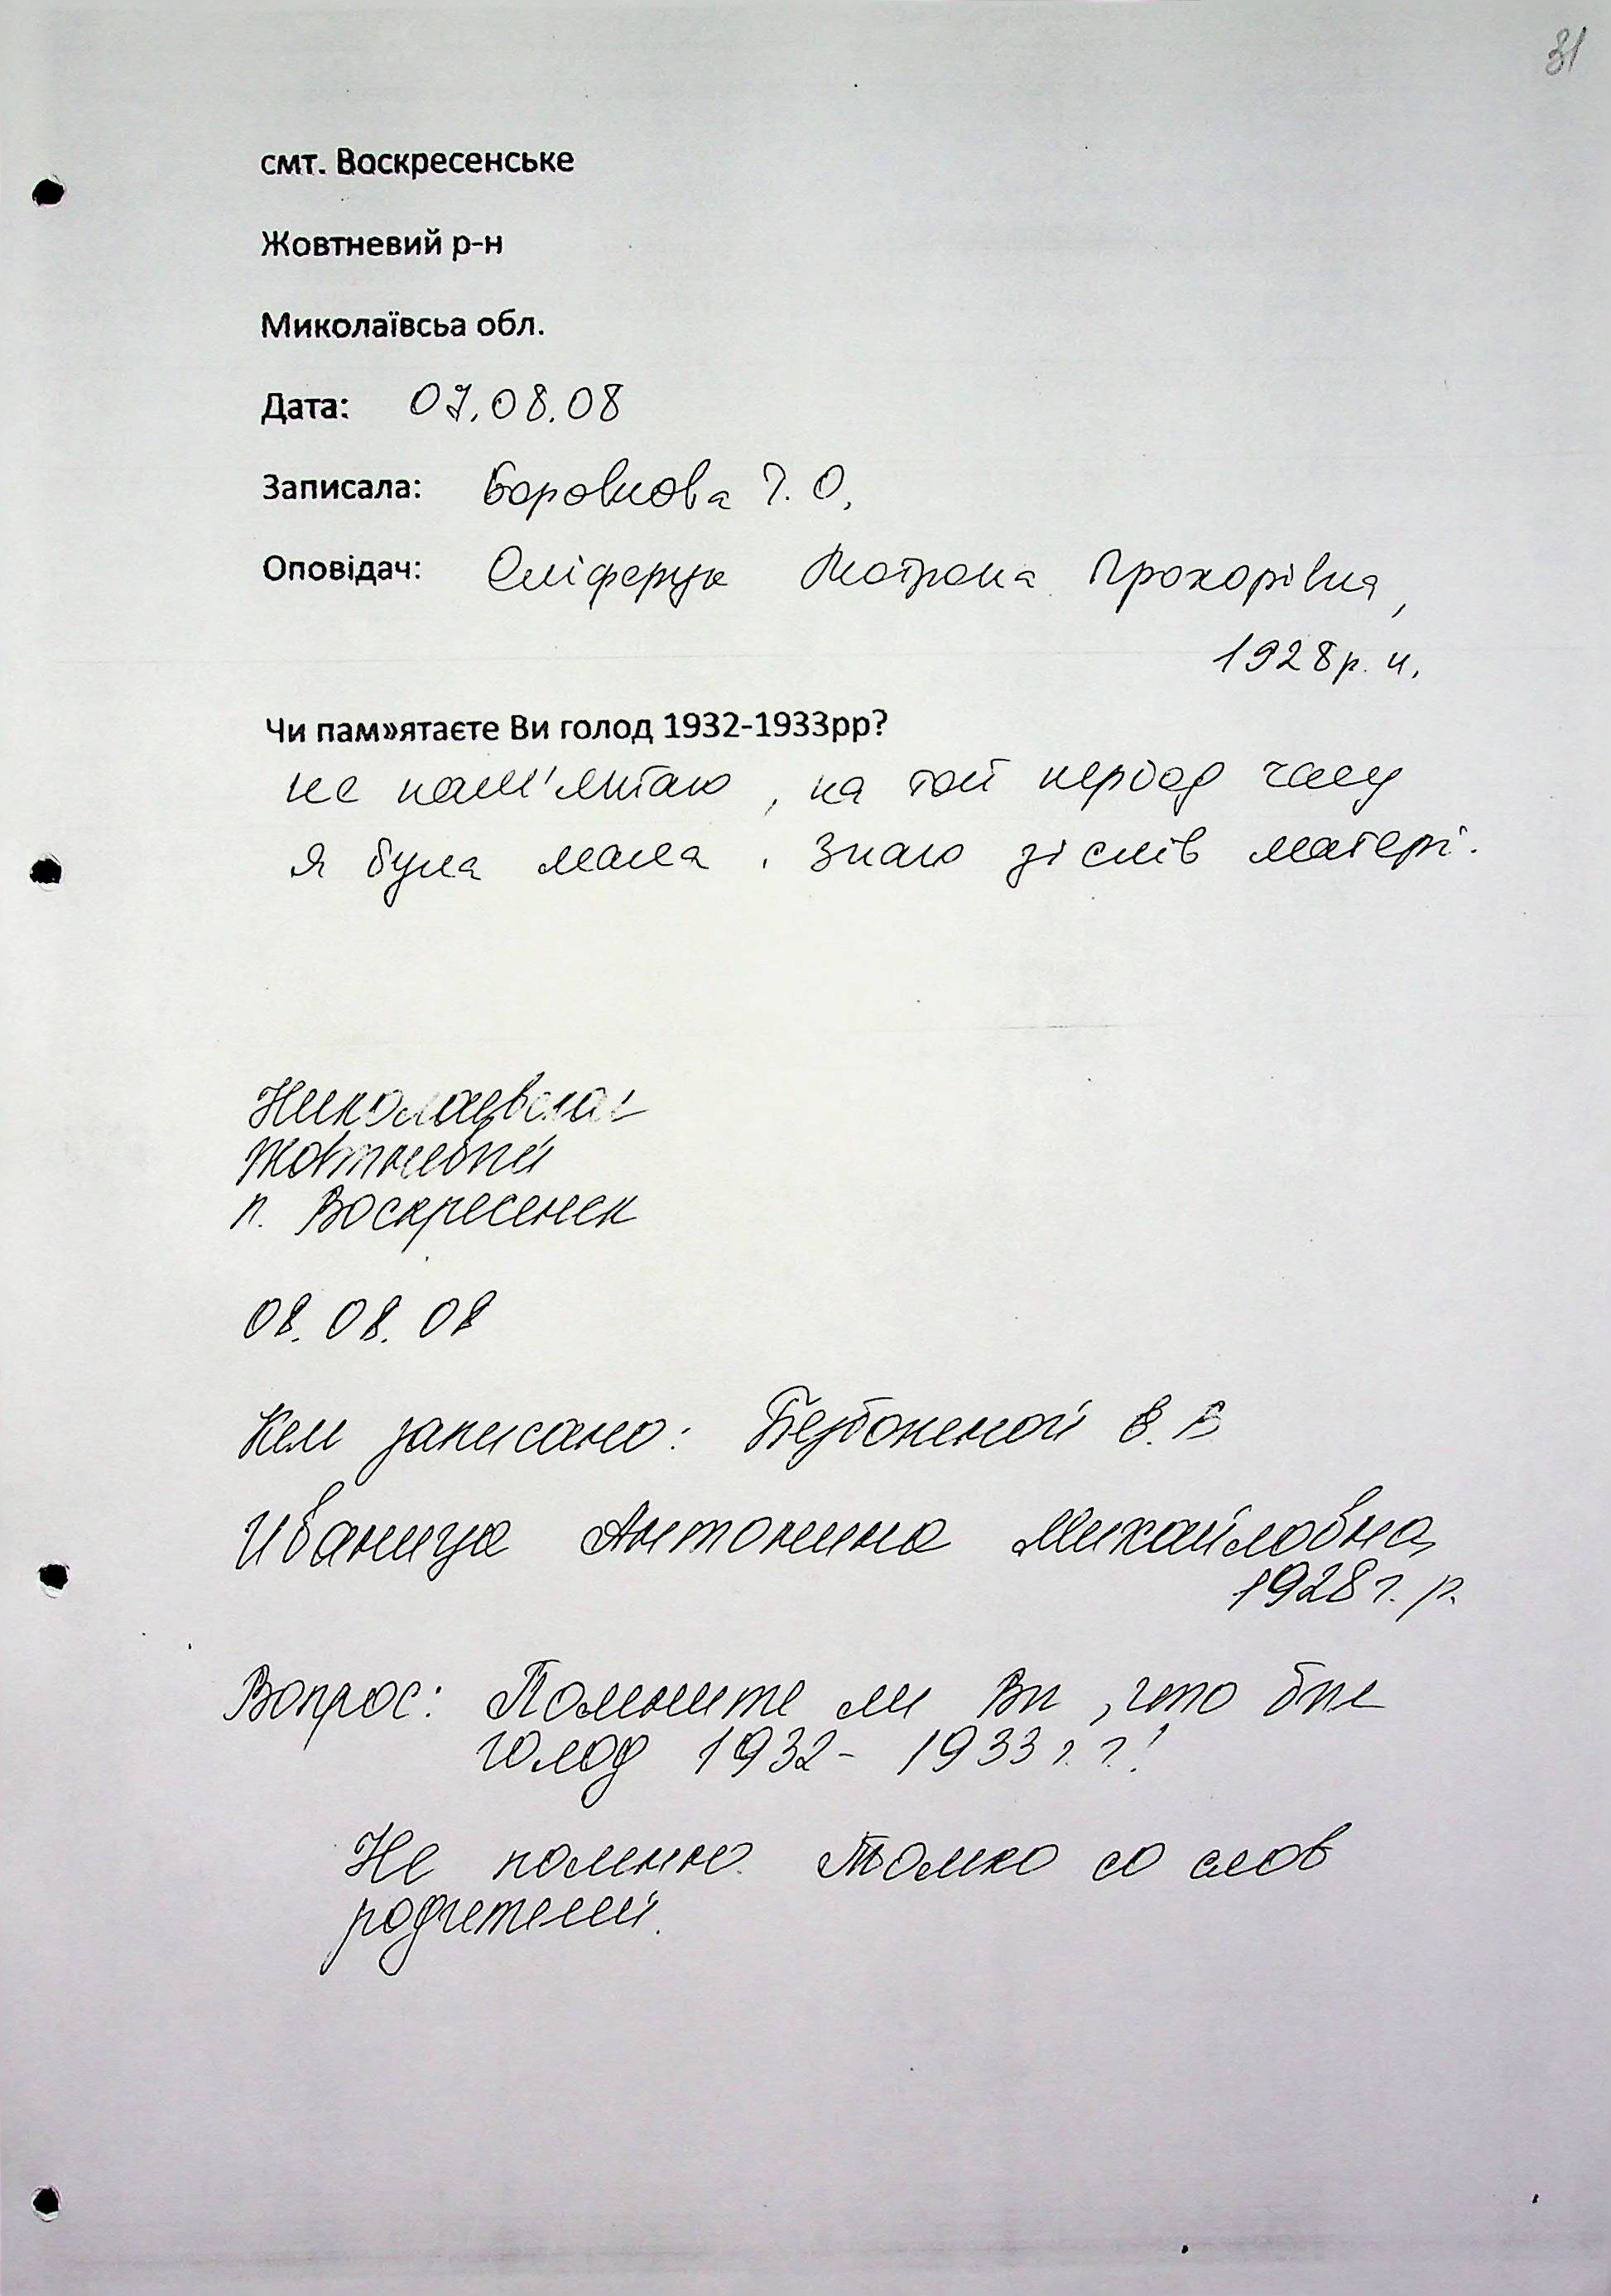 31
смт. Воскресенське
Жовтневий р-н
Миколаївсьа обл.
Дата: 07.08.08
Записала: Боровкова Г. О.
Оповідач: Мотрона Прохорівна,
1928 р. н.
Чи пам»ятаєте Ви голод 1932-1933рр?
не пам'ятаю, на той період часу
я була мала. Знаю зі слів матері.
Николаевская
Жовтневый
п. Воскресенск
08. 08. 08
Кем записано: В. В
Иваница Антонина Михайловна,
1928 г. р.
Вопрос: Помните ли Вы, что был
голод 1932 - 1933 г. г.?
Не помню. Только со слов
родителей.